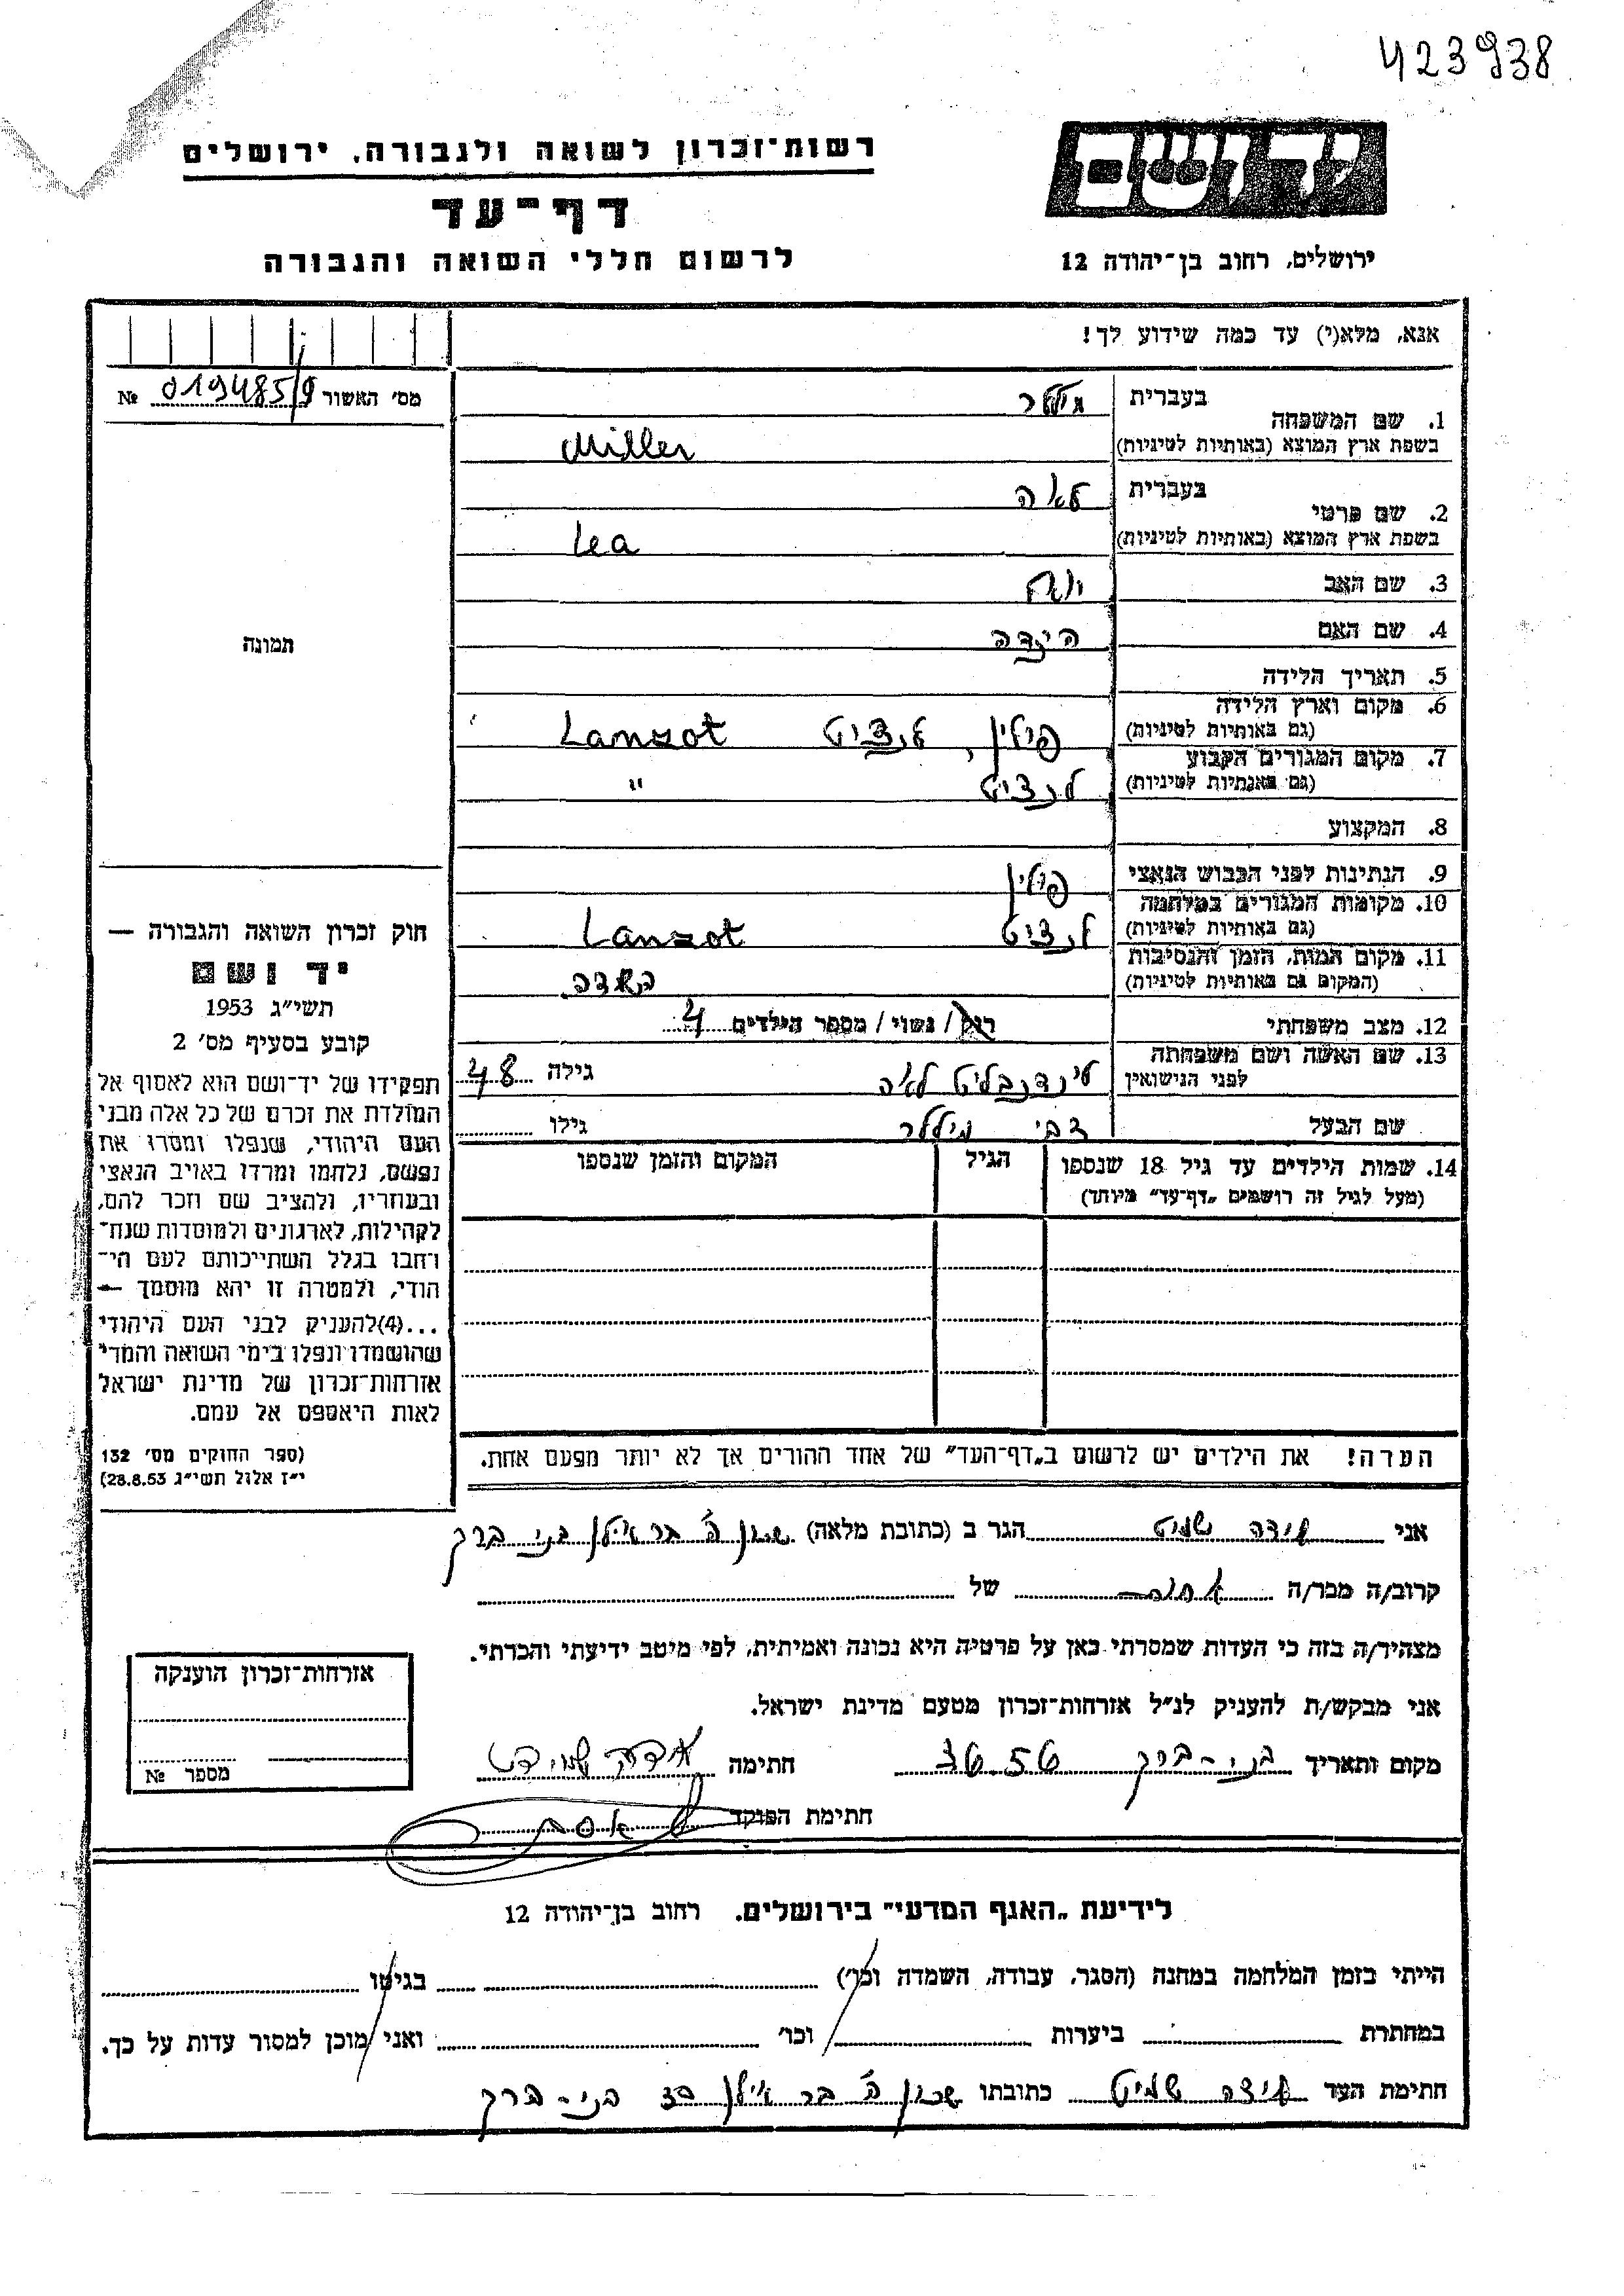 423938
יד ושם
רשות־זכרון לשואה ולגבורה, ירושלים
דף־עד
לרשום חללי השואה והגבורה
ירושלים, רחוב בן־יהודה 12
אנא, מלא(י) עד כמה שידוע לך!
מס׳ האשור 019485/9 №
1. שם המשפחה
בעברית מילר
בשפת ארץ המוצא (באותיות לטיניות) Miller
2. שם פרטי
בעברית לאה
בשפת ארץ המוצא (באותיות לטיניות) Lea
3. שם האב
4. שם האם הינדה
5. תאריך הלידה
6. מקום וארץ הלידה
(גם באותיות לטיניות) פולין, לנצוט Lanzot
7. מקום המגורים הקבוע
(גם באותיות לטיניות) לנצוט "
8. המקצוע
9. הנתינות לפני הכבוש הנאצי פולין
10. מקומות המגורים במלחמה
(גם באותיות לטיניות) לנצוט Lanzot
11. מקום המות, הזמן והנסיבות
(המקום גם באותיות לטיניות) השמדה
12. מצב משפחתי רוק/ נשוי/ מספר הילדים 4
13. שם האשה ושם משפחתה
לפני הנישואין לינדנבליט לאה גילה 48
שם הבעל צבי מילר גילו
14. שמות הילדים עד גיל 18 שנספו הגיל המקום והזמן שנספו
(מעל לגיל זה רושמים „דף־עד״ מיוחד)
הערה! את הילדים יש לרשום ב„דף־העד״ של אחד ההורים אך לא יותר מפעם אחת.
תמונה
חוק זכרון השואה והגבורה —
יד ושם
תשי״ג 1953
קובע בסעיף מס׳ 2
תפקידו של יד־ושם הוא לאסוף אל
המולדת את זכרם של כל אלה מבני
העם היהודי, שנפלו ומסרו את
נפשם, נלחמו ומרדו באויב הנאצי
ובעוזריו, ולהציב שם וזכר להם,
לקהילות, לארגונים ולמוסדות שנח־
רחבו בגלל השתייכותם לעם הי־
הודי, ולמטרה זו יהא מוסמך —
...(4)להעניק לבני העם היהודי
שהושמדו ונפלו בימי השואה והמרי
אזרחות־זכרון של מדינת ישראל
לאות היאספם אל עמם.
(ספר החוקים מס׳ 132
י״ז אלול תשי״ג 28.8.53)
אני אידה שמיט הגר ב (כתובת מלאה) שכון ה׳ בר אילן בני ברק
קרוב/ה מכר/ה של
מצהיר/ה בזה כי העדות שמסרתי כאן על פרטיה היא נכונה ואמיתית, לפי מיטב ידיעתי והכרתי.
אני מבקש/ת להעניק לנ״ל אזרחות־זכרון מטעם מדינת ישראל.
מקום ותאריך בני-ברק חתימה אידה שמידט
חתימת הפוקד
אזרחות־זכרון הוענקה
מספר №
לידיעת „האגף המדעי״ בירושלים, רחוב בן־יהודה 12
הייתי בזמן המלחמה במחנה (הסגר, עבודה, השמדה וכו׳) בגיטו
במחתרת ביערות וכו׳ ואני מוכן למסור עדות על כך.
חתימת העד אידה שמיט כתובתו שכון ה׳ בר אילן בני-ברק